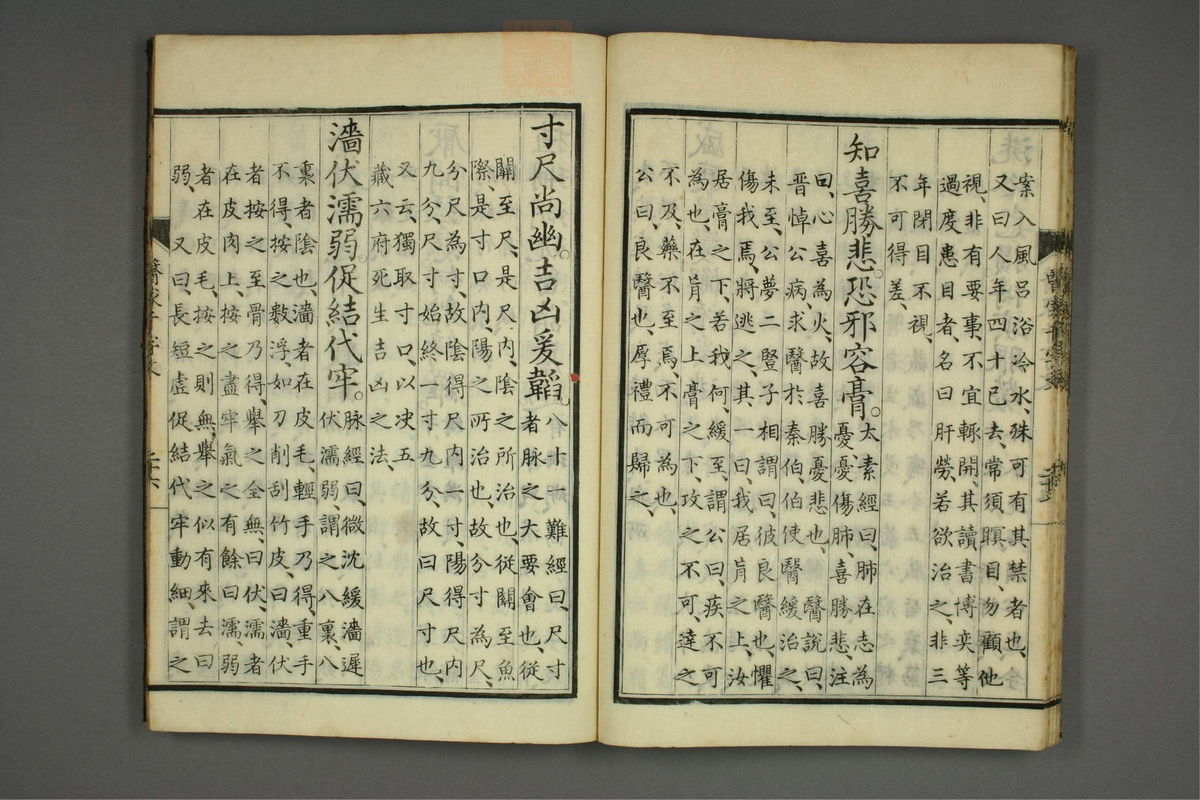 案入風呂浴冷水、殊可有其禁者也、
又曰人年四十已去、常須瞑目、勿顧他
視、非有要事、不宜輙開、其讀書博奕等
過度患目者、名曰肝勞、若欲治之、非三
年閉目不視、
不可得差、
知喜勝悲。恐邪容膏。
太素經曰、肺在志為
憂、憂傷肺、喜勝悲、注
曰、心喜為火、故喜勝憂悲也、醫說曰、
晉悼公病、求醫於秦伯、伯使醫緩治之、
未至、公夢二豎子相謂曰、彼良醫也、懼
傷我焉、將逃之、其一曰、我居肓之上、汝
居膏之下、若我何、緩至、謂公曰、疾不可
為也、在肓之上、膏之下、攻之不可、達之
不及、藥不至焉、不可為也、
公曰、良醫也、厚禮而歸之、
寸尺尚幽。吉凶爰韜。
八十一難經曰、尺寸
者脉之大要會也、從
關至尺、是尺内、陰之所治也、從關至魚
際、是寸口内、陽之所治也、故分寸為尺、
分尺為寸、故陰得尺内一寸、陽得尺内
九分、尺寸始終一寸九分、故曰尺寸也、
又云、獨取寸口、以决五
藏六府死生吉凶之法、
濇伏濡弱。促結代牢。
脉經曰、微沈緩濇遲
伏濡弱、謂之八裏、八
裏者陰也、濇者在皮毛、輕手乃得、重手
不得、按之數浮、如刀削刮竹皮、曰濇、伏
者按之至骨乃得、舉之全無、曰伏、濡者
在皮肉上、按之盡牢氣之有餘曰濡、弱
者在皮毛、按之則無、舉之似有來去曰
弱、又曰、長短虚促結代牢動細、謂之